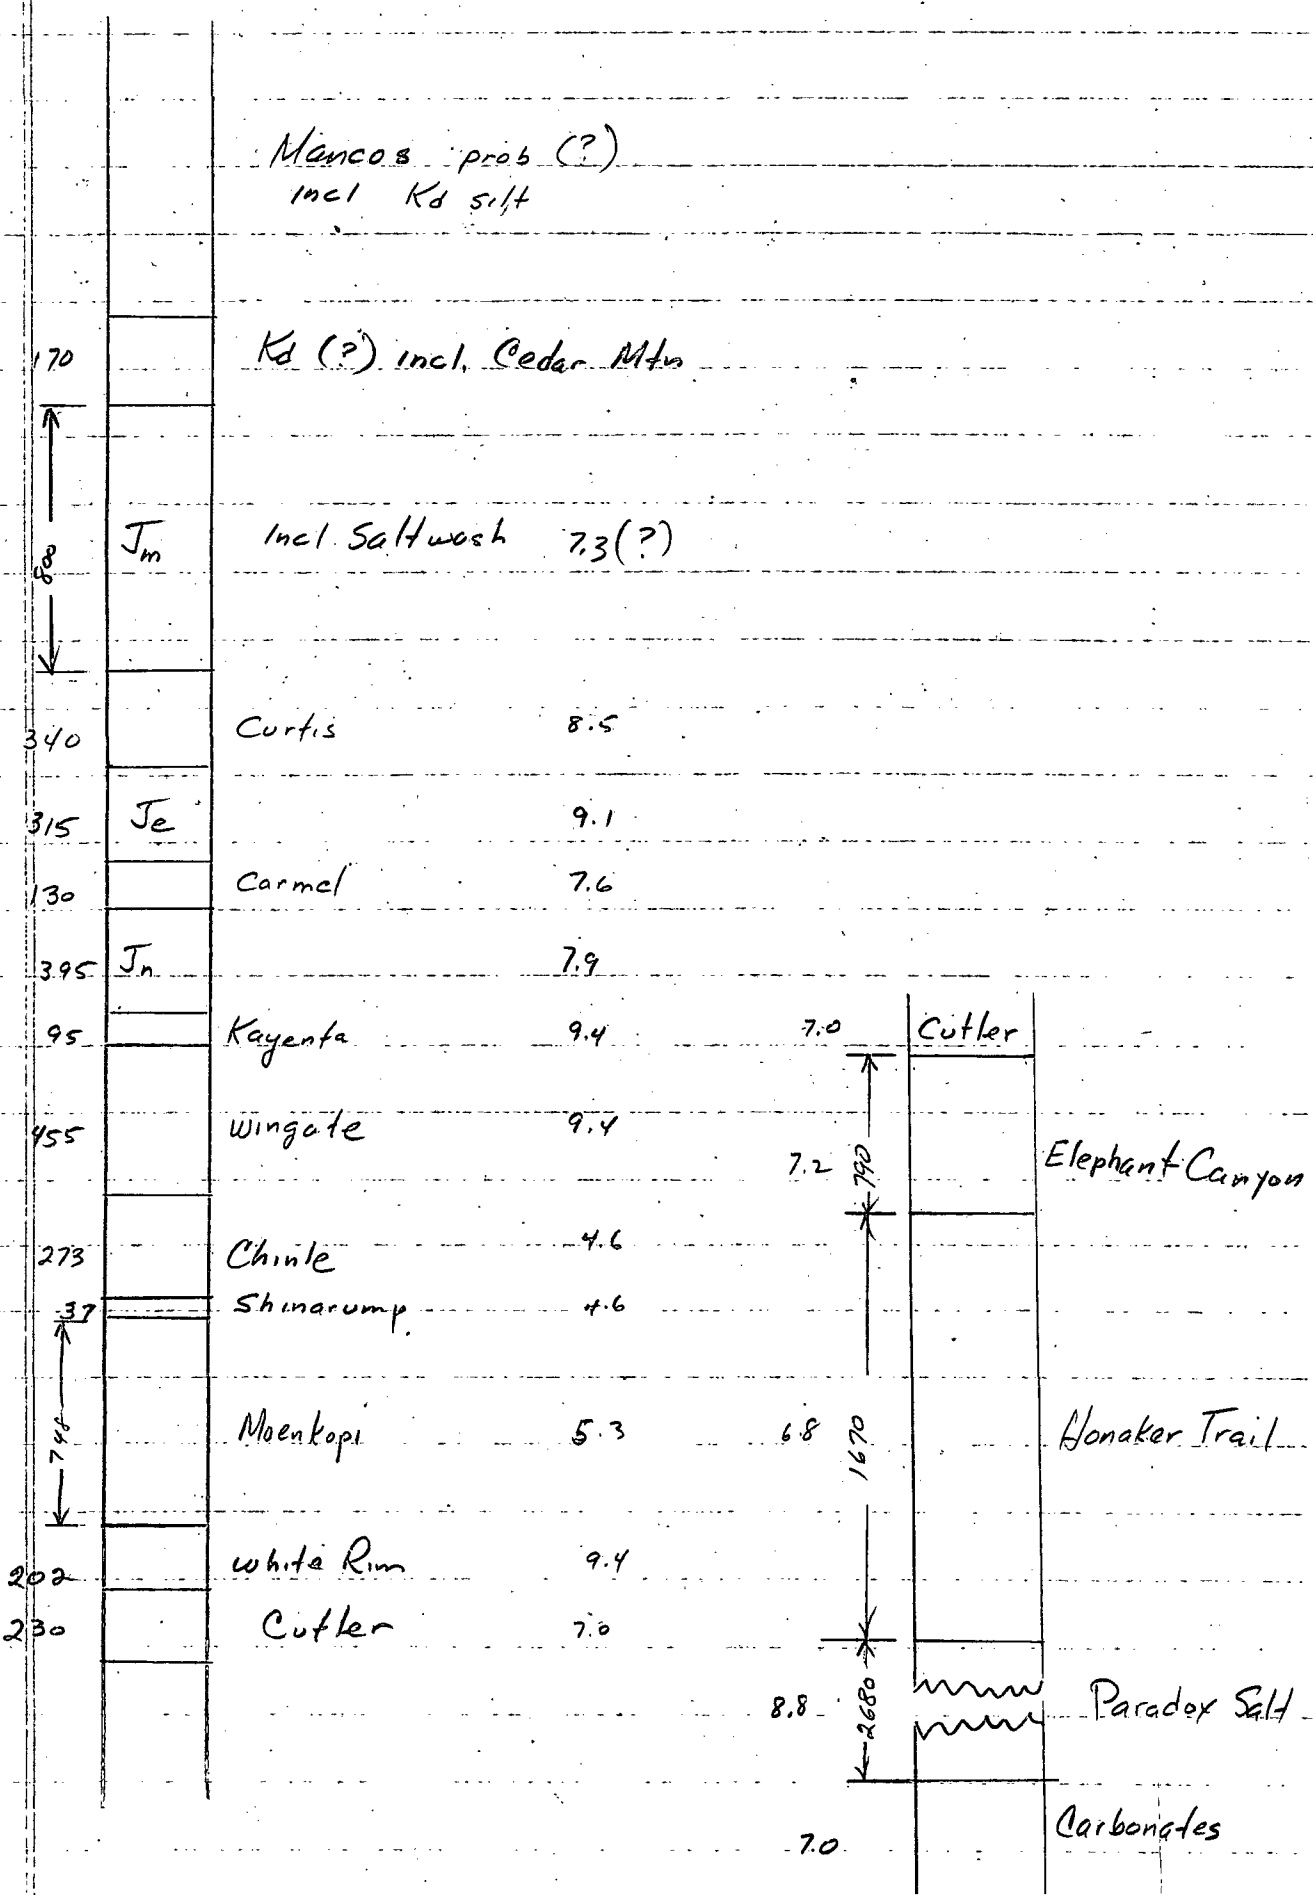 Mancos prob (?)
incl Kd silt
170 Kd (?) incl. Cedar Mtn
800 Jm Incl. Saltwash 7.3(?)
340 Curtis 8.5
315 Je 9.1
130 Carmel 7.6
395 Jn 7.9
95 Kayenta 9.4
455 Wingate 9.4
273 Chinle 4.6
37 Shinarump 4.6
748 Moenkopi 5.3
202 White Rim 9.4
230 Cutler 7.0
7.0 Cutler
7.2 790 Elephant Canyon
6.8 1670 Honaker Trail
8.8 2680 Paradox Salt
7.0 Carbonates